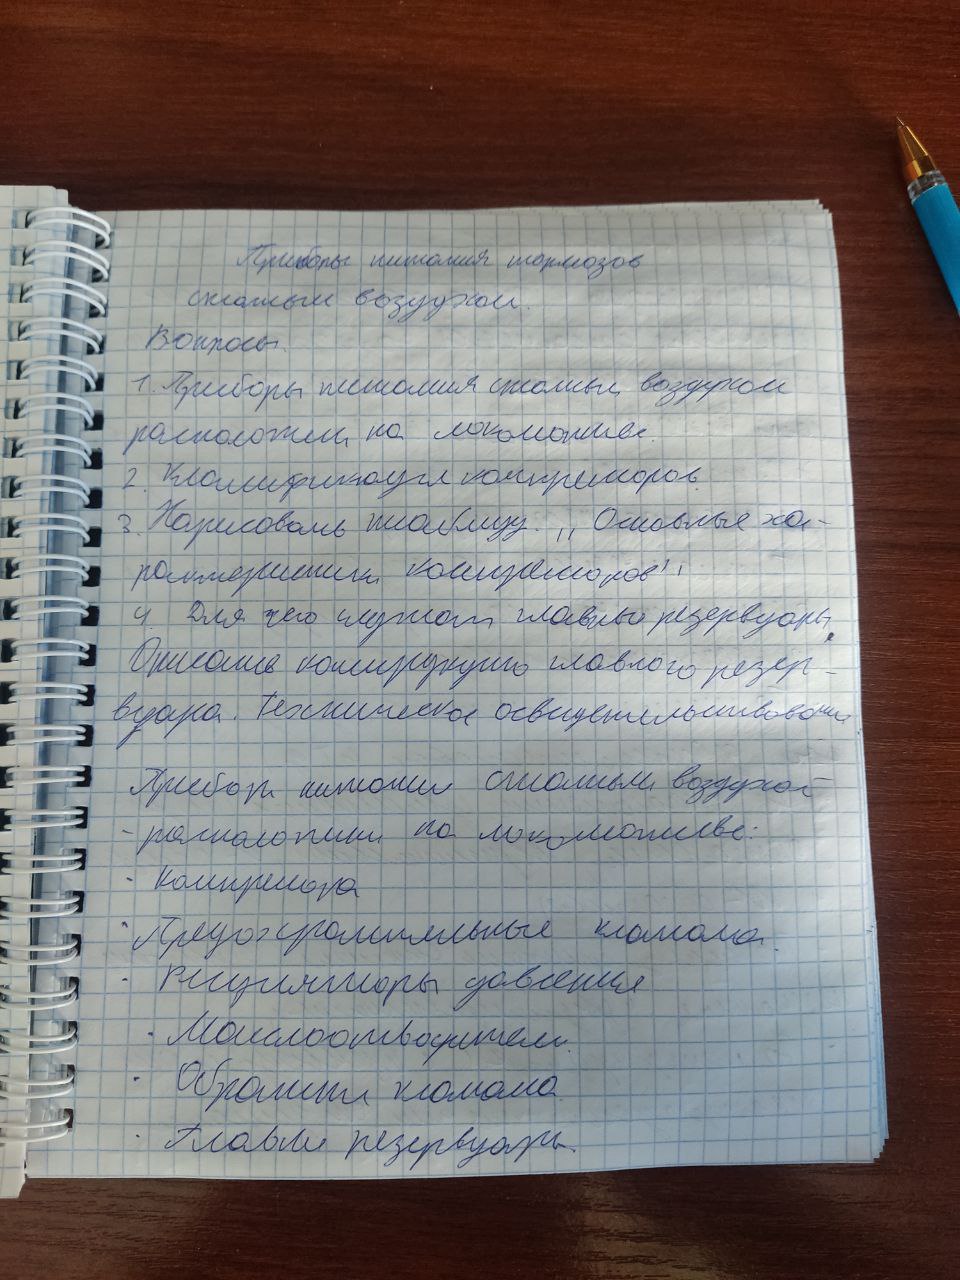 Приборы питания тормозов
сжатым воздухом.
Вопросы.
1. Приборы питания сжатым воздухом
расположен на локомотиве.
2. Классификация компрессоров.
3. Нарисовать таблицу „Основные ха-
рактеристики компрессоров"
4. Для чего служат главные резервуары.
Описание конструкцию главного резер-
вуара. Техническое освидетельствование
Прибор питание сжатым воздухом
- расположены на локомотиве:
- Компрессора
· Предохранительные клапана.
- Регуляторы давления
· Маслоотводители.
· Обратные клапана
· Главные резервуары.